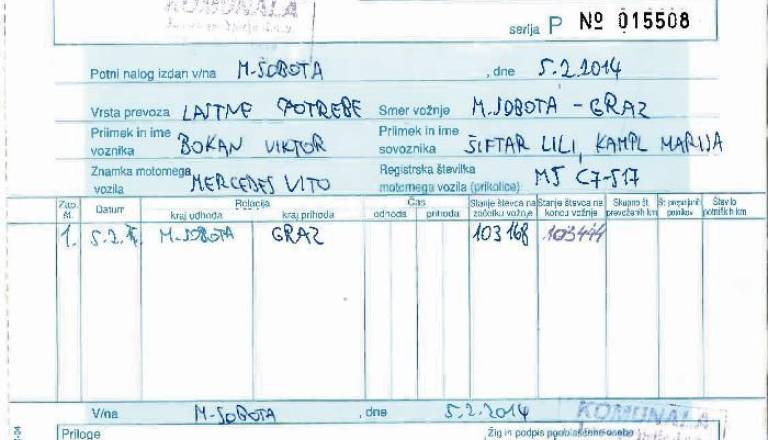 KOMUNALA
serija P № 015508
Potni nalog izdan v/na M. SOBOTA , dne 5.2.2014
Vrsta prevoza LASTNE POTREBE Smer vožnje M. SOBOTA - GRAZ
Priimek in ime voznika BOKAN VIKTOR Priimek in ime sovoznika ŠIFTAR LILI, KAMPL MARIJA
Znamka motornega vozila MERCEDES VITO Registrska številka motornega vozila (prikolice) MS C7-517
Zap. št. Datum Relacija kraj odhoda kraj prihoda Čas odhoda prihoda Stanje števca na začetku vožnje Stanje števca na koncu vožnje Skupno št. prevoženih km Št. prepeljanih potnikov Število potniških km
1. 5.2. M. SOBOTA GRAZ 103168 103444
V/na M. SOBOTA , dne 5.2.2014 KOMUNALA
Priloge Žig in podpis pooblaščene osebe